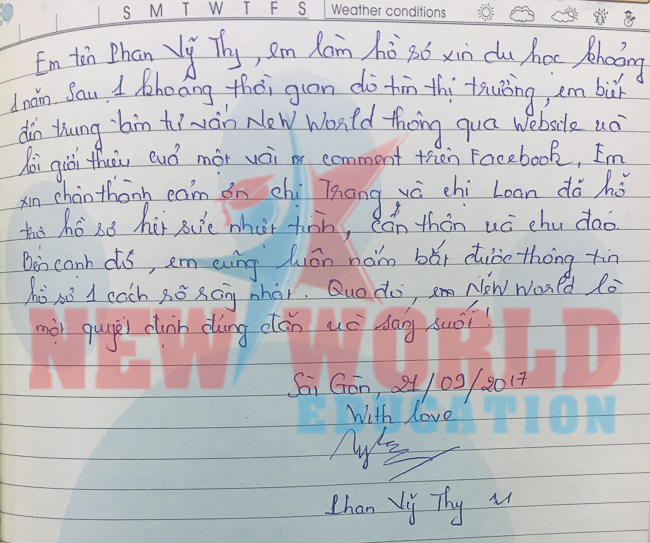 S M T W T F S Weather conditions
Em tên Phan Vỹ Thy, em làm hồ sơ xin du học khoảng
1 năm. Sau 1 khoảng thời gian dò tìm thị trường, em biết
đến trung tâm tư vấn New World thông qua website và
lời giới thiệu của một vài comment trên Facebook. Em
xin chân thành cảm ơn chị Trang và chị Loan đã hỗ
trợ hồ sơ hết sức nhiệt tình, cẩn thận và chu đáo.
Bên cạnh đó, em cũng luôn nắm bắt được thông tin
hồ sơ 1 cách rõ ràng nhất. Qua đó, em New World là
một quyết định đúng đắn và sáng suốt!
NEW WORLD
EDUCATION
Sài Gòn, 21/09/2017
With love
Phan Vỹ Thy